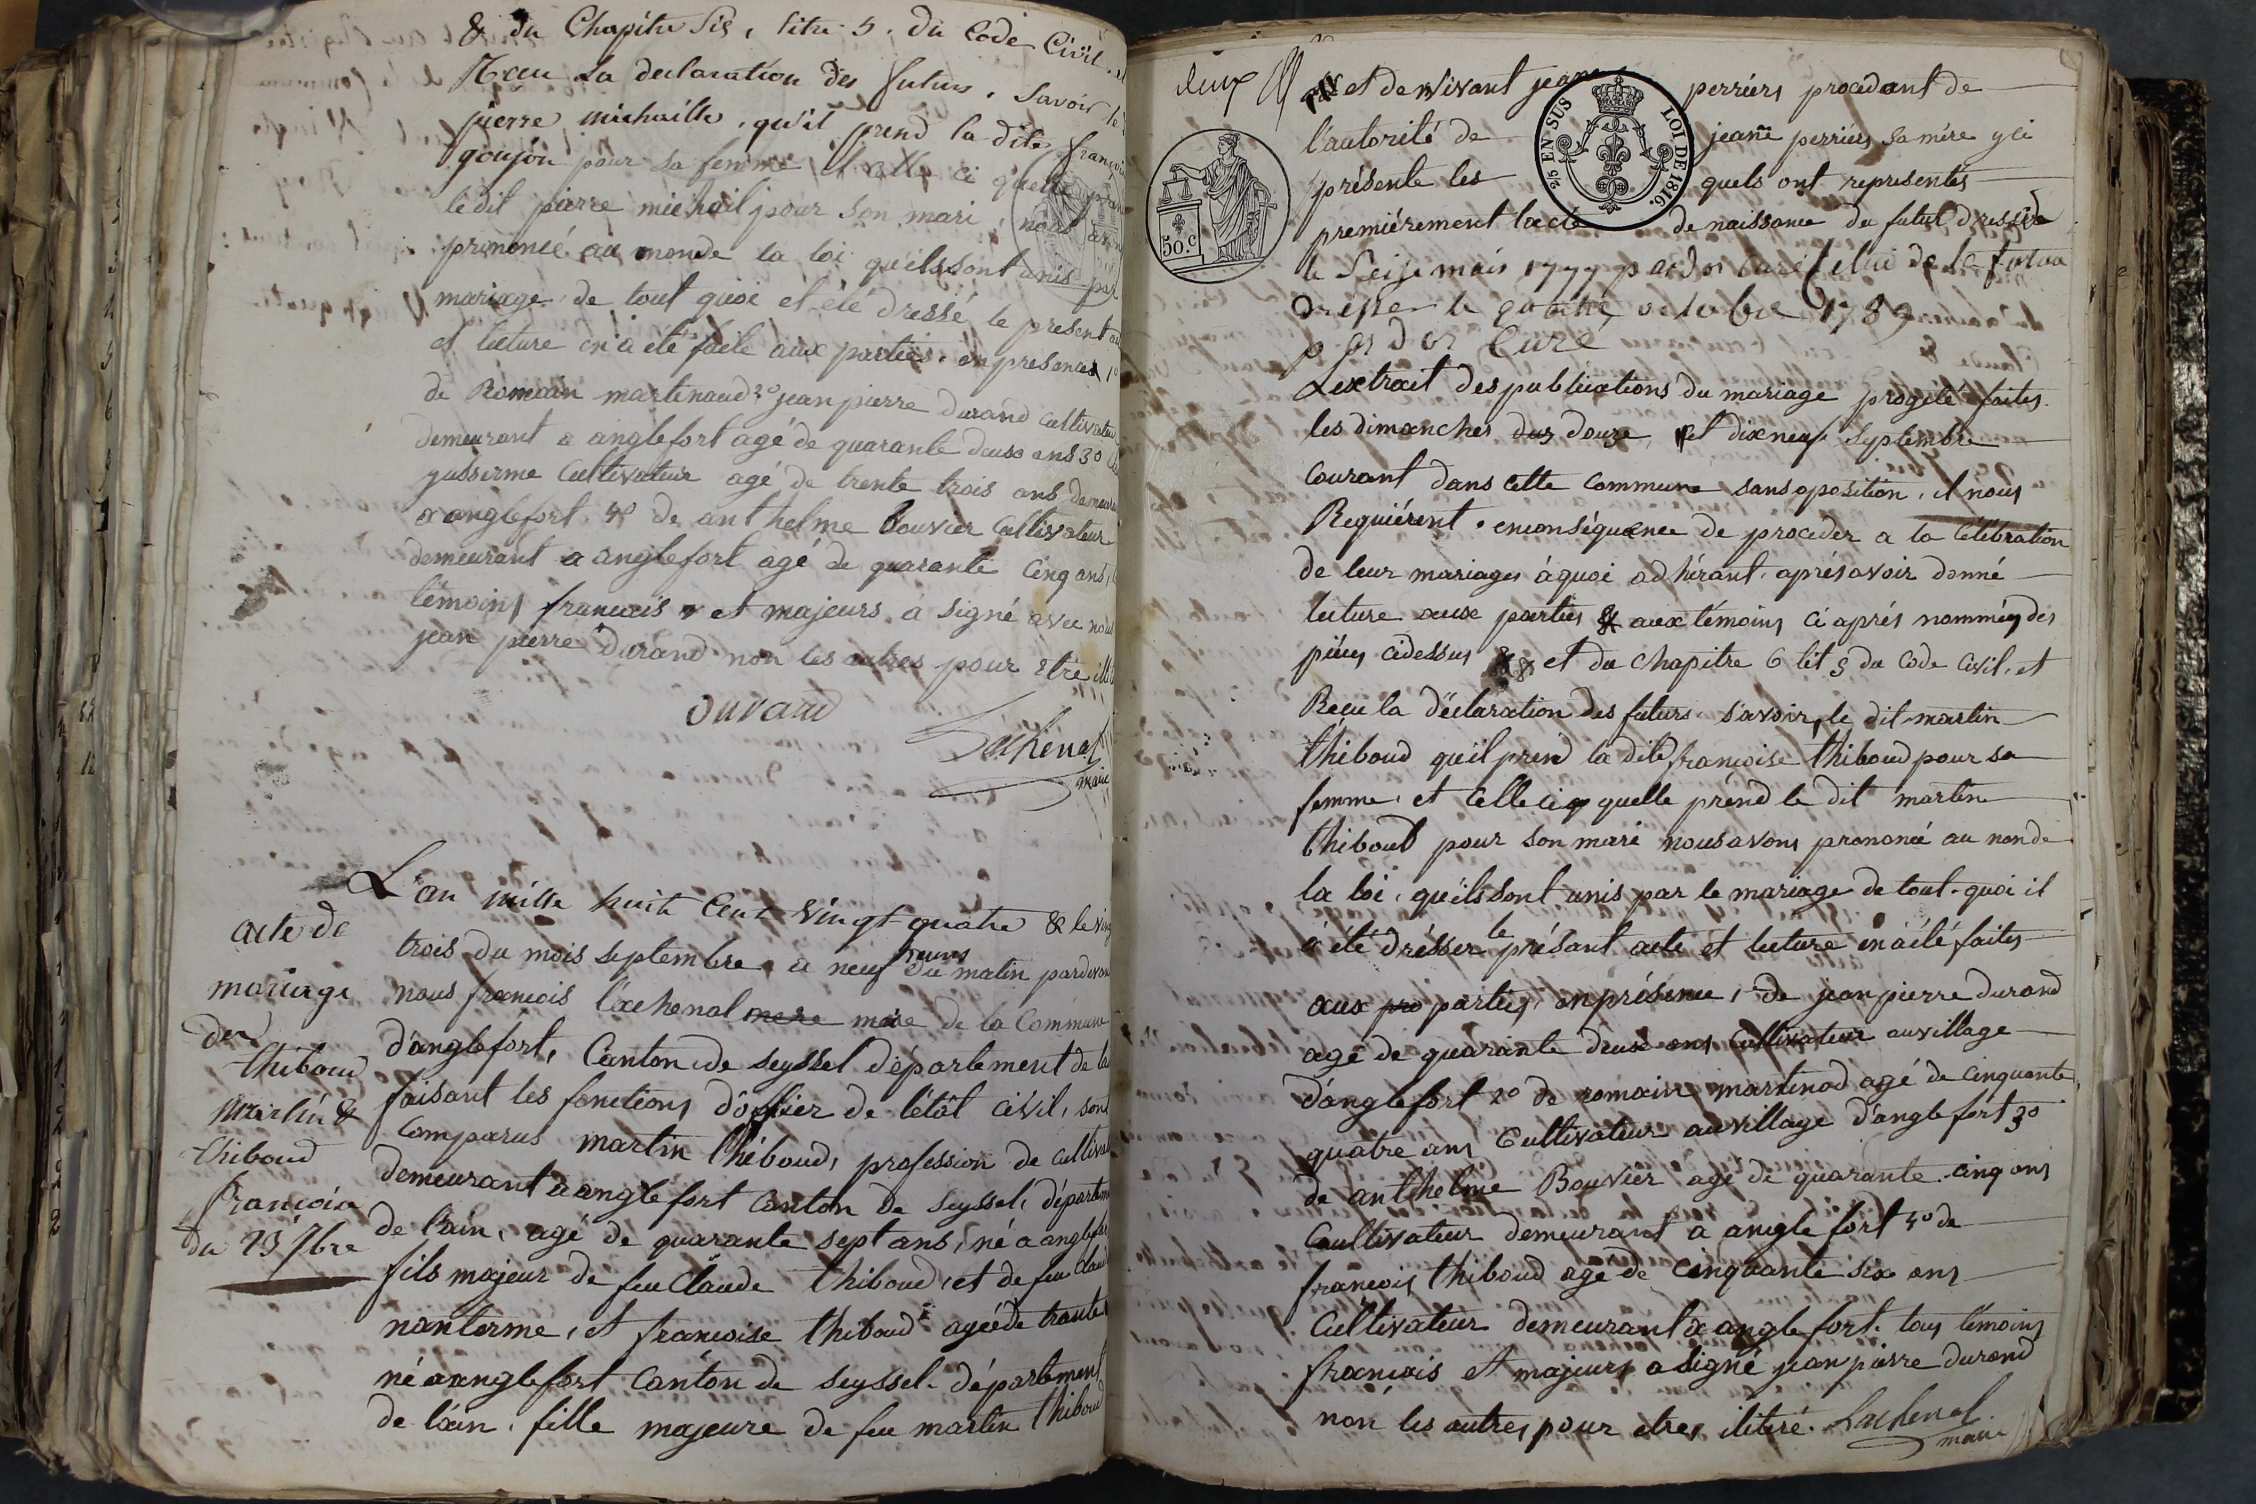 & du Chapitre Six, titre 5. du Code Civil. et
Recu la declaration des futurs, savoir le
pierre michaille, qu'il prend la dite françoise
goujon pour sa femme, et celle ci quelle prend
le dit pierre michail pour son mari, nous avons
prononcé au nonde la loi qu'ils sont unis par
mariage de tout quoi et été dressé le present
et lecture en a été faite aux parties. en presences 1°
de Romain martinaud 2° jean pierre Durand cultivateur
demeurant a anglefort agé de quarante deuse ans 3°
Cultivateur agé de trente trois ans demeurant
a anglefort 4° de anthelme bouvier Cultivateur
demeurant a anglefort agé de quarante Cinq ans,
témoins francais et majeurs a signé avec nous
jean pierre Durand non les autres pour être
Durand
Lachenal
maire
L'an mille huit Cent vingt quatre & le vingt
trois du mois septembre a neuf heures du matin pardevant
nous francois Lachenal mere maire de la Commune
d'anglefort, Canton de seyssel département de
faisant les fonctions d'officier de l'état civil, sont
Comparus martin thiboud, profession de cultivateur
demeurant a anglefort Canton de Seyssel, département
de l'ain, agé de quarante sept ans, né a anglefort
fils majeur de feu Claude thiboud, et de feu
nanterme, et francoise thiboud agée de trante
né a anglefort Canton de seyssel département
de l'ain, fille majeure de feu martin thiboud
acte de
mariage
de
thiboud
martin &
thiboud
francoise
du 23 7bre
deux
et de vivant jeane perriers procédant de
l'autorité de jeane perriers sa mére y ci
présente les quels ont representés
premiérement lacte de naissance du futur dressé
le Seise mais 1777 Curé Celui de la future
Dresser le quatre octobre 1789
Curé
Lextrait des publications du mariage progeté faites
les dimanches dus douze, et dixneuf Septembre
Courant dans cette commune sans oposition, il nous
Requiérent. enconséquence de proceder a la Célébration
de leur mariages àquoi adhérant. aprés avoir donné
lecture aux parties & aux témoins ci aprés nommés des
piéces cidessus et du Chapitre 6 tit 5 du Code Civil. et
Recu la déclaration des futurs savoir, le dit martin
thiboud qu'il prend la dite françoise thiboud pour sa
femme, et celle ci quelle prend le dit martin
thiboud pour son mari nous avons prononcé au nonde
la loi, qu'ils sont unis par le mariage de tout quoi il
a été drésser le présant acte et lecture en à été faites
aux pro parties, en présence, 1° de jean pierre durand
agé de quarante deux ans Cultivateur au village
d'anglefort 2° de romain martinod agé de cinquante
quatre ans Cultivateur au village d'anglefort 3°
de anthelme Bouvier agé de quarante cinq ans
Cultivateur demeurant a anglefort 4° de
francois thiboud agé de Cinquante six ans
Cultivateur demeurant a anglefort. tous témoins
francais et majeurs a signé jean pierre durand
non les autres pour etres iliteré. Lachenal
maire
2/5 EN SUS LOI DE 1816.
50.c